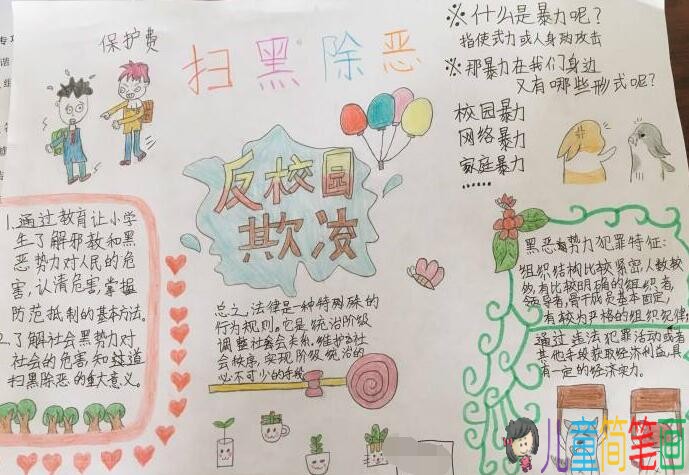 保护费
扫黑除恶
※什么是暴力呢?
指使武力或人身动攻击
※那暴力在我们身边
又有哪些形式呢?
校园暴力
网络暴力
家庭暴力
……
反校园
欺凌
1.通过教育让小学
生了解邪教和黑
恶势力对人民的危
害,认清危害,掌握
防范抵制的基本方法。
2.了解社会黑势力对
社会的危害,知道
扫黑除恶的重大意义。
总之,法律是一种特殊的
行为规则。它是统治阶级
调整社会关系,维护
社会秩序,实现阶级统治的
必不可少的手段
黑恶势力犯罪特征:
组织结构比较紧密,人数较
多,有比较明确的组织者,
领导者,骨干成员基本固定,
有较为严格的组织犯律;
通过违法犯罪活动或者
其他手段获取经济利益,具
有一定的经济实力。
儿童简笔画